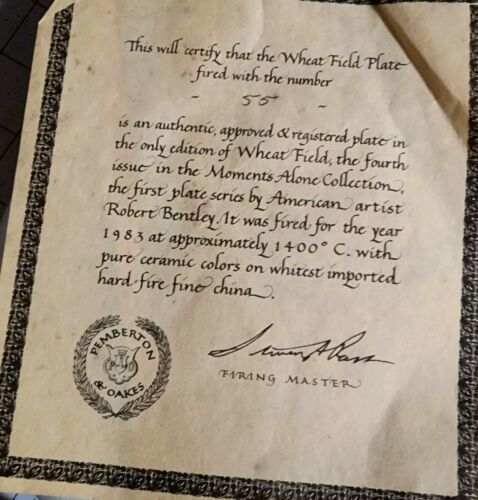 This will certify that the Wheat Field Plate
fired with the number
- 55 -
is an authentic, approved & registered plate in
the only edition of Wheat Field, the fourth
issue in the Moments Alone Collection,
the first plate series by American artist
Robert Bentley. It was fired for the year
1983 at approximately 1400° C. with
pure ceramic colors on whitest imported
hard fire fine china.
PEMBERTON
& OAKES
FIRING MASTER